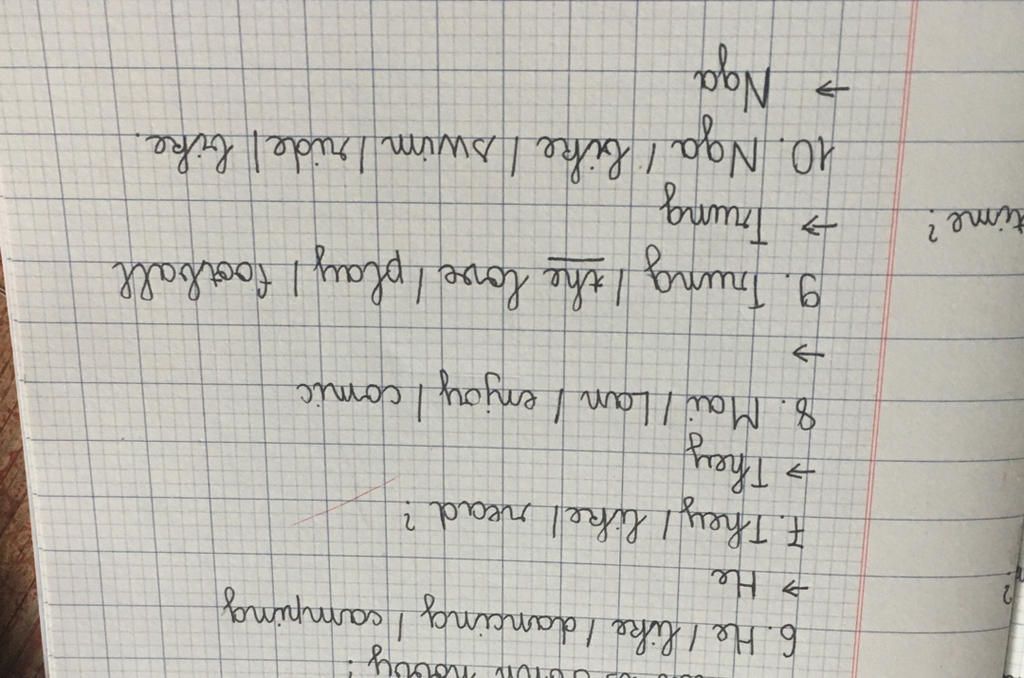 hobby?
6. He / like / dancing / camping
→ He
7. They / like / read?
→ They
8. Mai / Lan / enjoy / comic
→
9. Trung / the love / play / football
→ Trung
10. Nga / like / swim / ride / bike.
→ Nga
time?
?